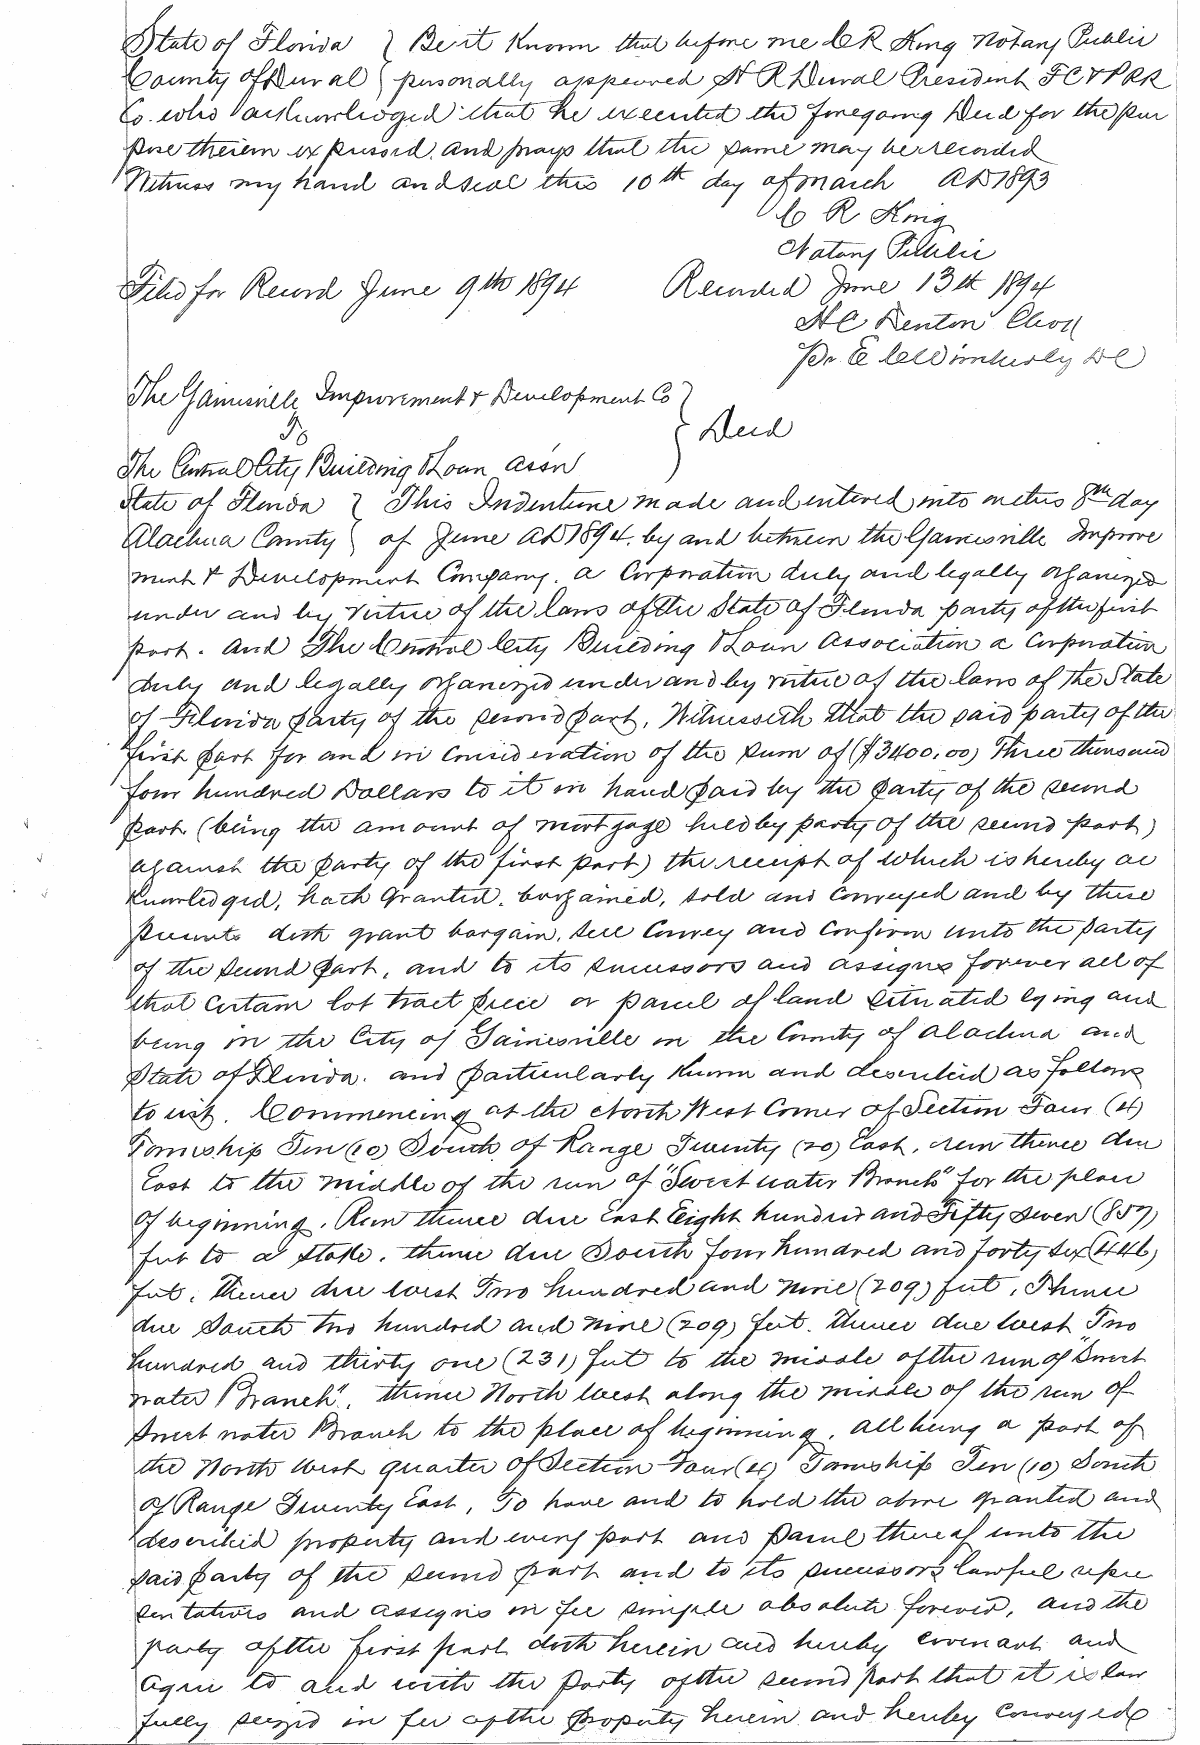 State of Florida } Be it Known that before me C R King Notary Public
County of Duval } personally appeared H R Duval President F C & P RR
Co. who acknowledged that he executed the foregoing Deed for the pur
pose therein expressed. and prays that the same may be recorded
Witness my hand and seal this 10th day of March AD 1893
C R King
Notary Public
Filed for Record June 9th 1894 Recorded June 13th 1894
H C Denton Clerk
Pr. E C Wimberly DC
The Gainesville Improvement & Development Co }
To } Deed
The Central City Building & Loan Assn
State of Florida } This Indenture made and entered into on this 8th day
Alachua County } of June AD 1894. by and between the Gainesville Improve
ment & Development Company. a Corporation duly and legally organized
under and by virtue of the laws of the State of Florida party of the first
part. and The Central City Building & Loan Association a Corporation
duly and legally organized under and by virtue of the laws of the State
of Florida party of the second part, Witnesseth that the said party of the
first part for and in consideration of the sum of ($3400.00) Three thousand
four hundred Dollars to it in hand paid by the party of the second
part (being the amount of mortgage held by party of the second part)
against the party of the first part) the receipt of which is hereby ac
knowledged, hath granted, bargained, sold and conveyed and by these
presents doth grant bargain, sell Convey and Confirm unto the party
of the second part, and to its successors and assigns forever all of
that certain lot tract piece or parcel of land situated lying and
being in the City of Gainesville in the County of Alachua and
State of Florida. and particularly known and described as follows
to wit. Commencing at the North West Corner of Section Four (4)
Township Ten (10) South of Range Twenty (20) East, run thence due
East to the middle of the run of "Sweet water Branch" for the place
of beginning. Run thence due East Eight hundred and Fifty seven (857)
feet to a stake. thence due South four hundred and forty six (446)
feet. thence due West Two hundred and nine (209) feet. Thence
due South two hundred and nine (209) feet. thence due West Two
hundred and thirty one (231) feet to the middle of the run of "Sweet
water Branch", thence North West along the middle of the run of
Sweet water Branch to the place of beginning. all being a part of
the North West quarter of Section Four (4) Township Ten (10) South
of Range Twenty East, To have and to hold the above granted and
described property and every part and parcel thereof unto the
said party of the second part and to its successors lawful repre
sentatives and assigns in fee simple absolute forever, and the
party of the first part doth herein and hereby covenant and
agree to and with the party of the second part that it is law
fully seized in fee of the property herein and hereby conveyed